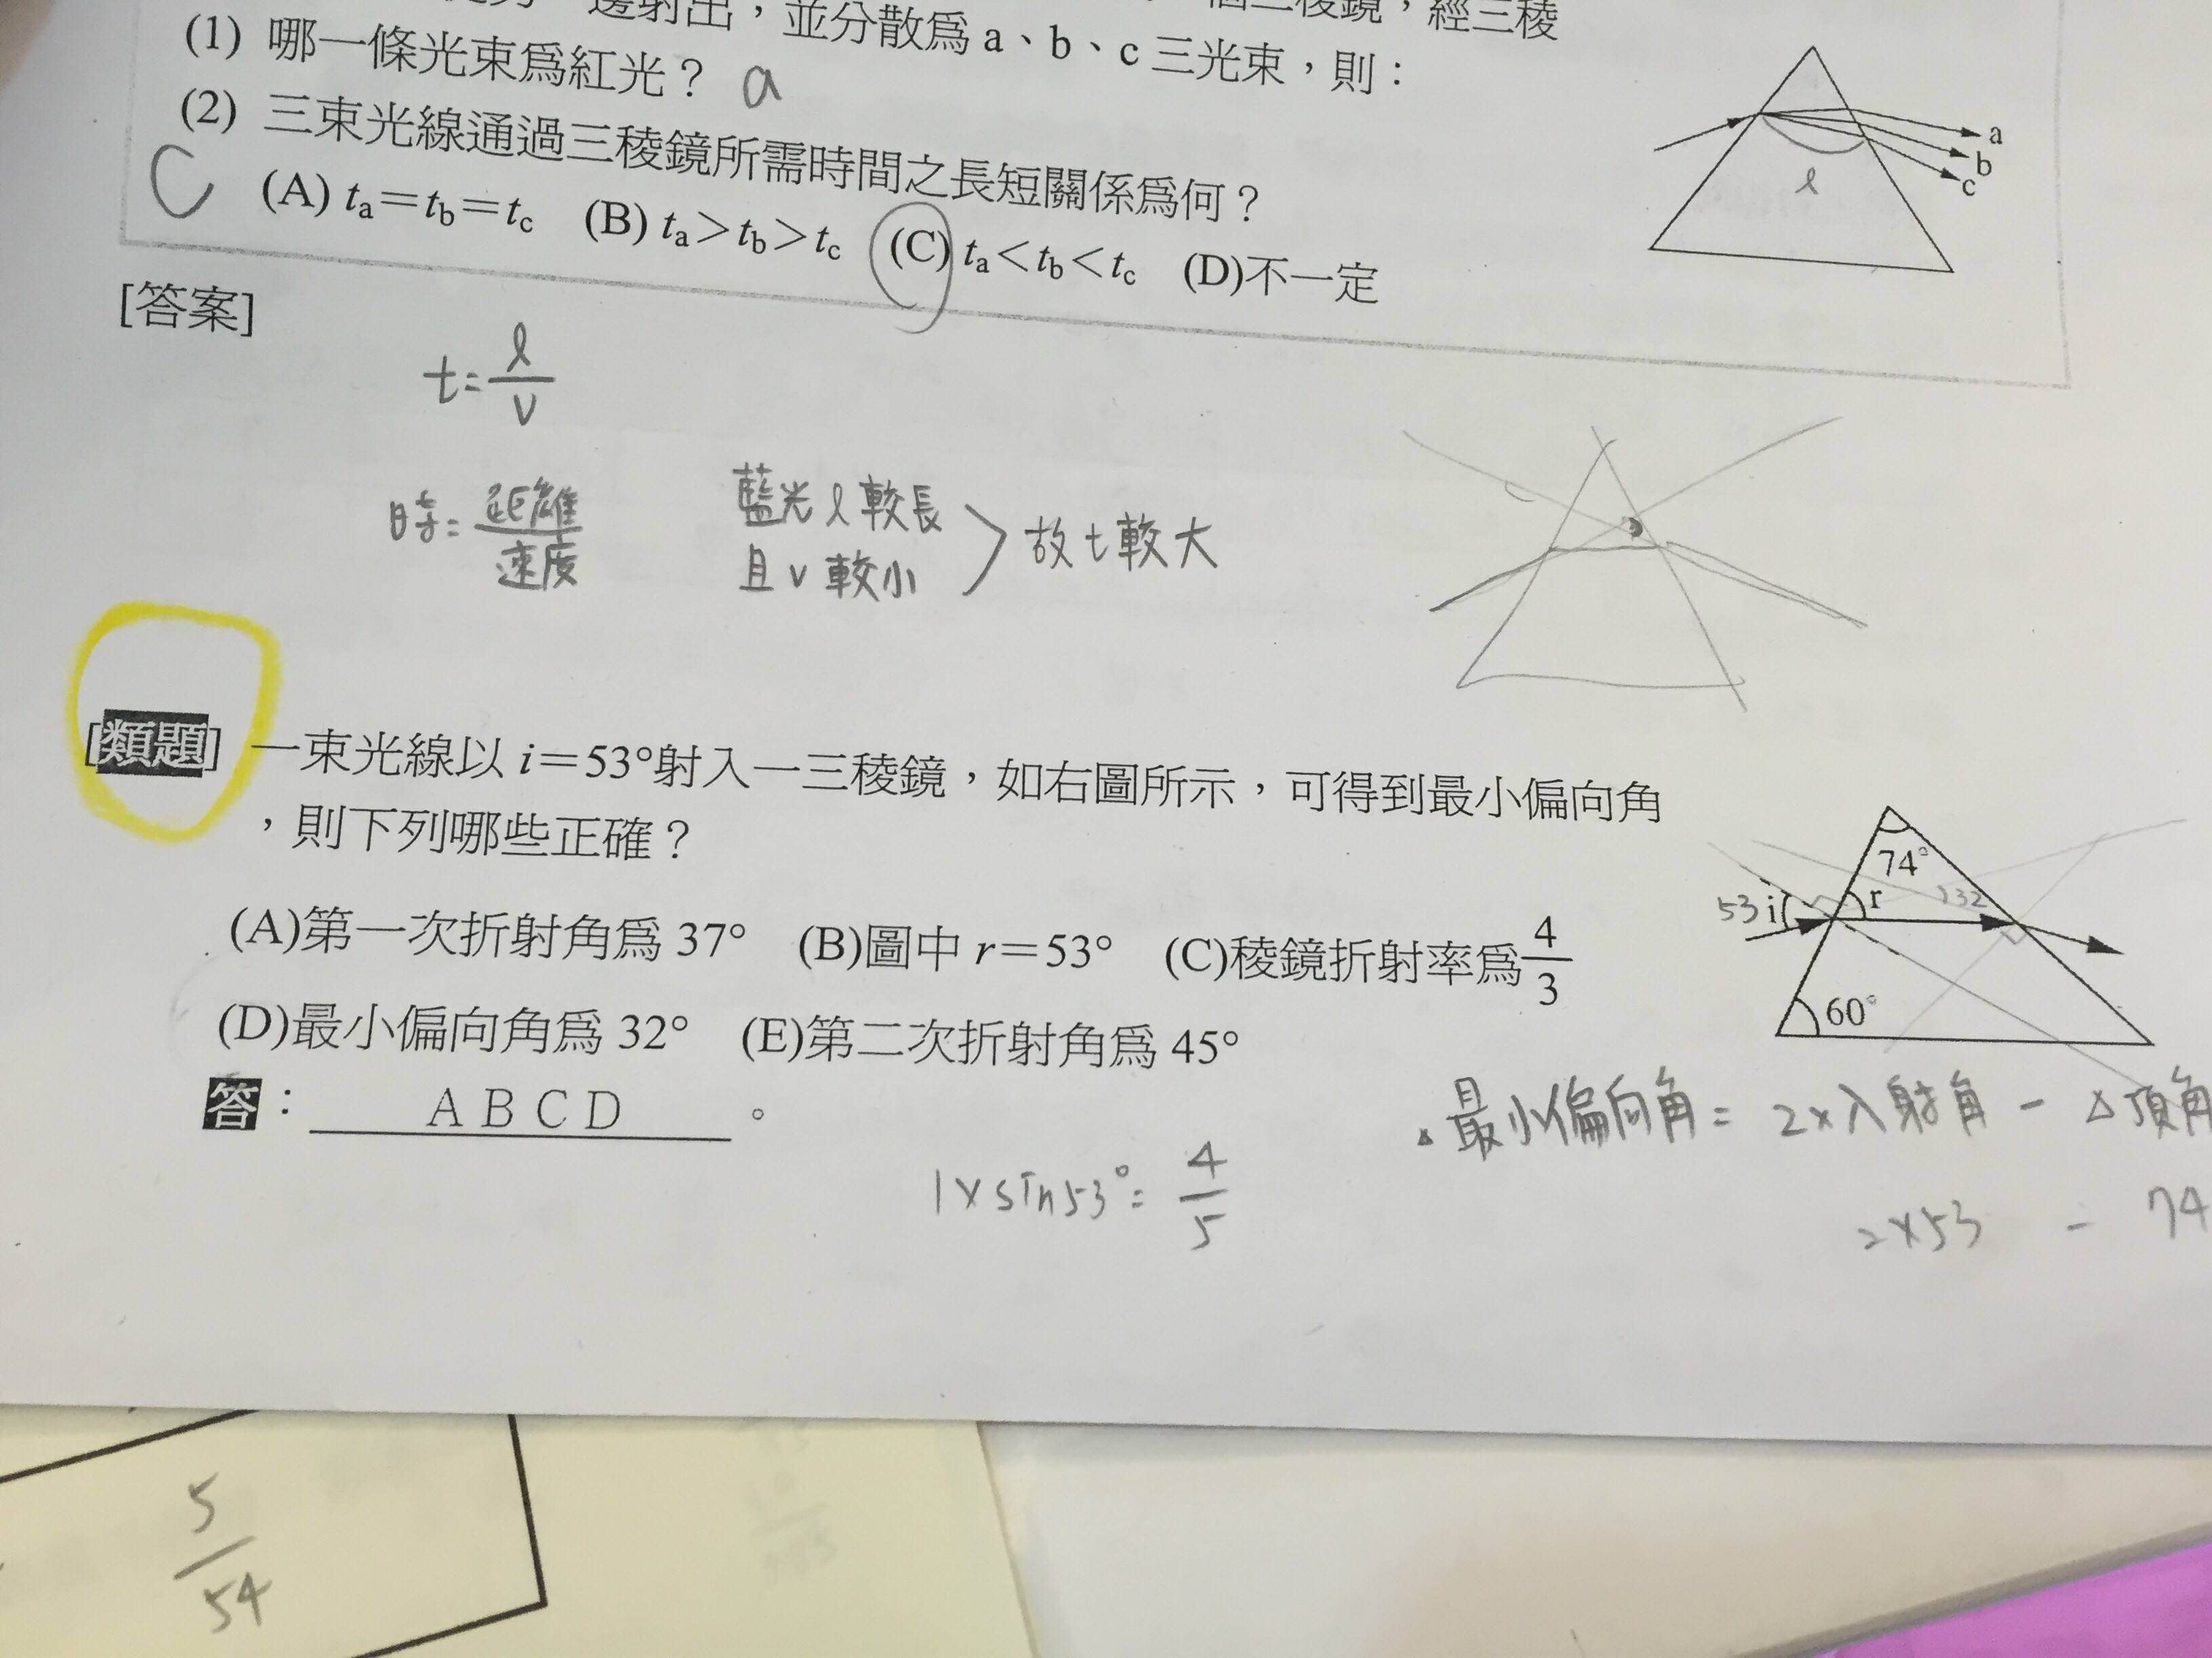 邊射出，並分散爲 a、b、c 三光束，則：
個三稜鏡，經三稜
(1) 哪一條光束爲紅光？ a
(2) 三束光線通過三稜鏡所需時間之長短關係爲何？
C (A) ta＝tb＝tc (B) ta＞tb＞tc (C) ta＜tb＜tc (D)不一定
a
b
c
ℓ
[答案]
t=ℓ/v
時=距離/速度
藍光ℓ較長
且v較小
故t較大
[類題] 一束光線以 i＝53°射入一三稜鏡，如右圖所示，可得到最小偏向角
，則下列哪些正確？
(A)第一次折射角爲 37° (B)圖中 r＝53° (C)稜鏡折射率爲4/3
(D)最小偏向角爲 32° (E)第二次折射角爲 45°
答： A B C D 。
74°
53 i r 132
60°
最小偏向角= 2×入射角 - △頂角
2×53 - 74
1×sin53°=4/5
5/54